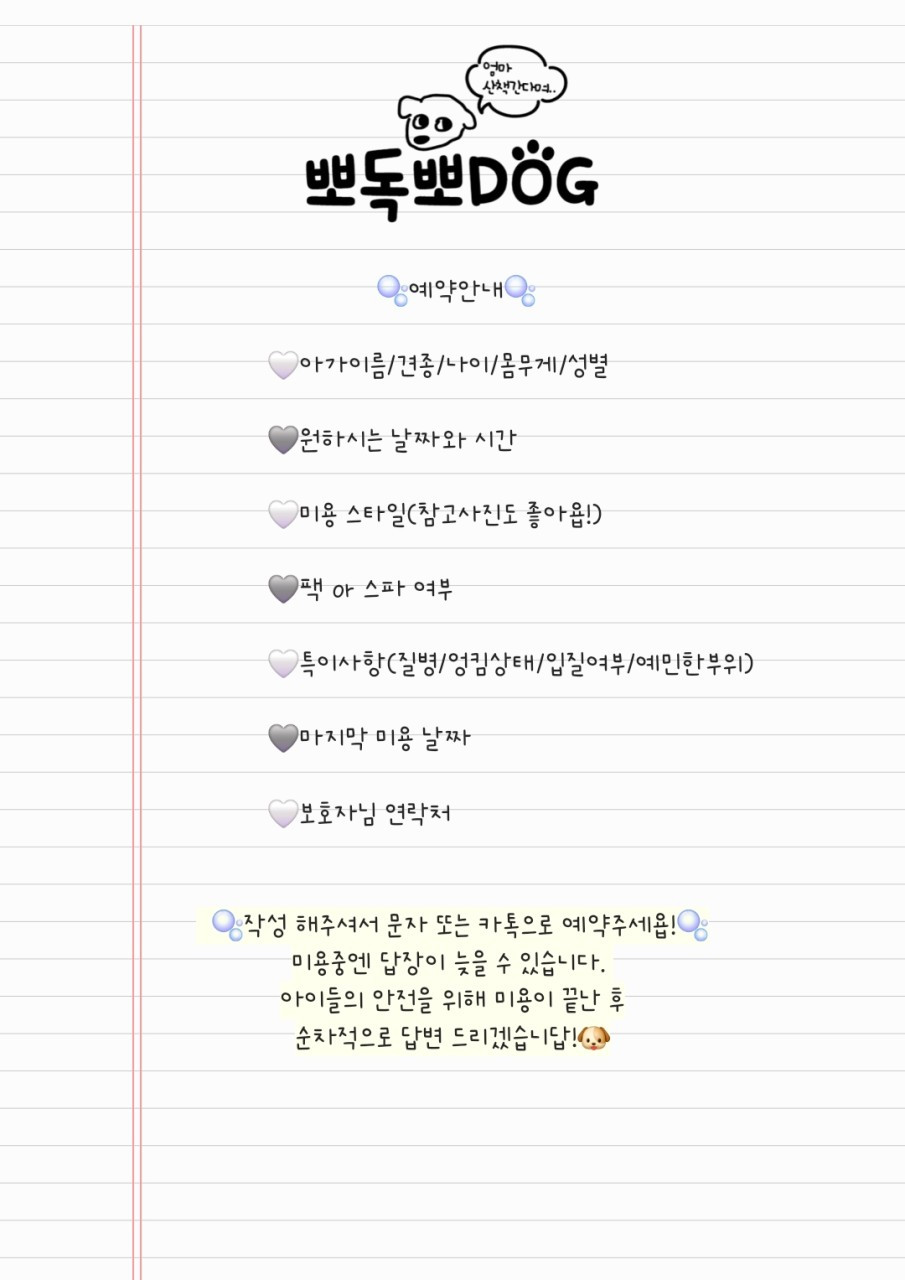 엄마
산책간다며..
뽀독뽀DOG
🫧예약안내🫧
🤍아가이름/견종/나이/몸무게/성별
🖤원하시는 날짜와 시간
🤍미용 스타일(참고사진도 좋아욥!)
🖤팩 or 스파 여부
🤍특이사항(질병/엉킴상태/입질여부/예민한부위)
🖤마지막 미용 날짜
🤍보호자님 연락처
🫧작성 해주셔서 문자 또는 카톡으로 예약주세욥!🫧
미용중엔 답장이 늦을 수 있습니다.
아이들의 안전을 위해 미용이 끝난 후
순차적으로 답변 드리겠습니답!🐶